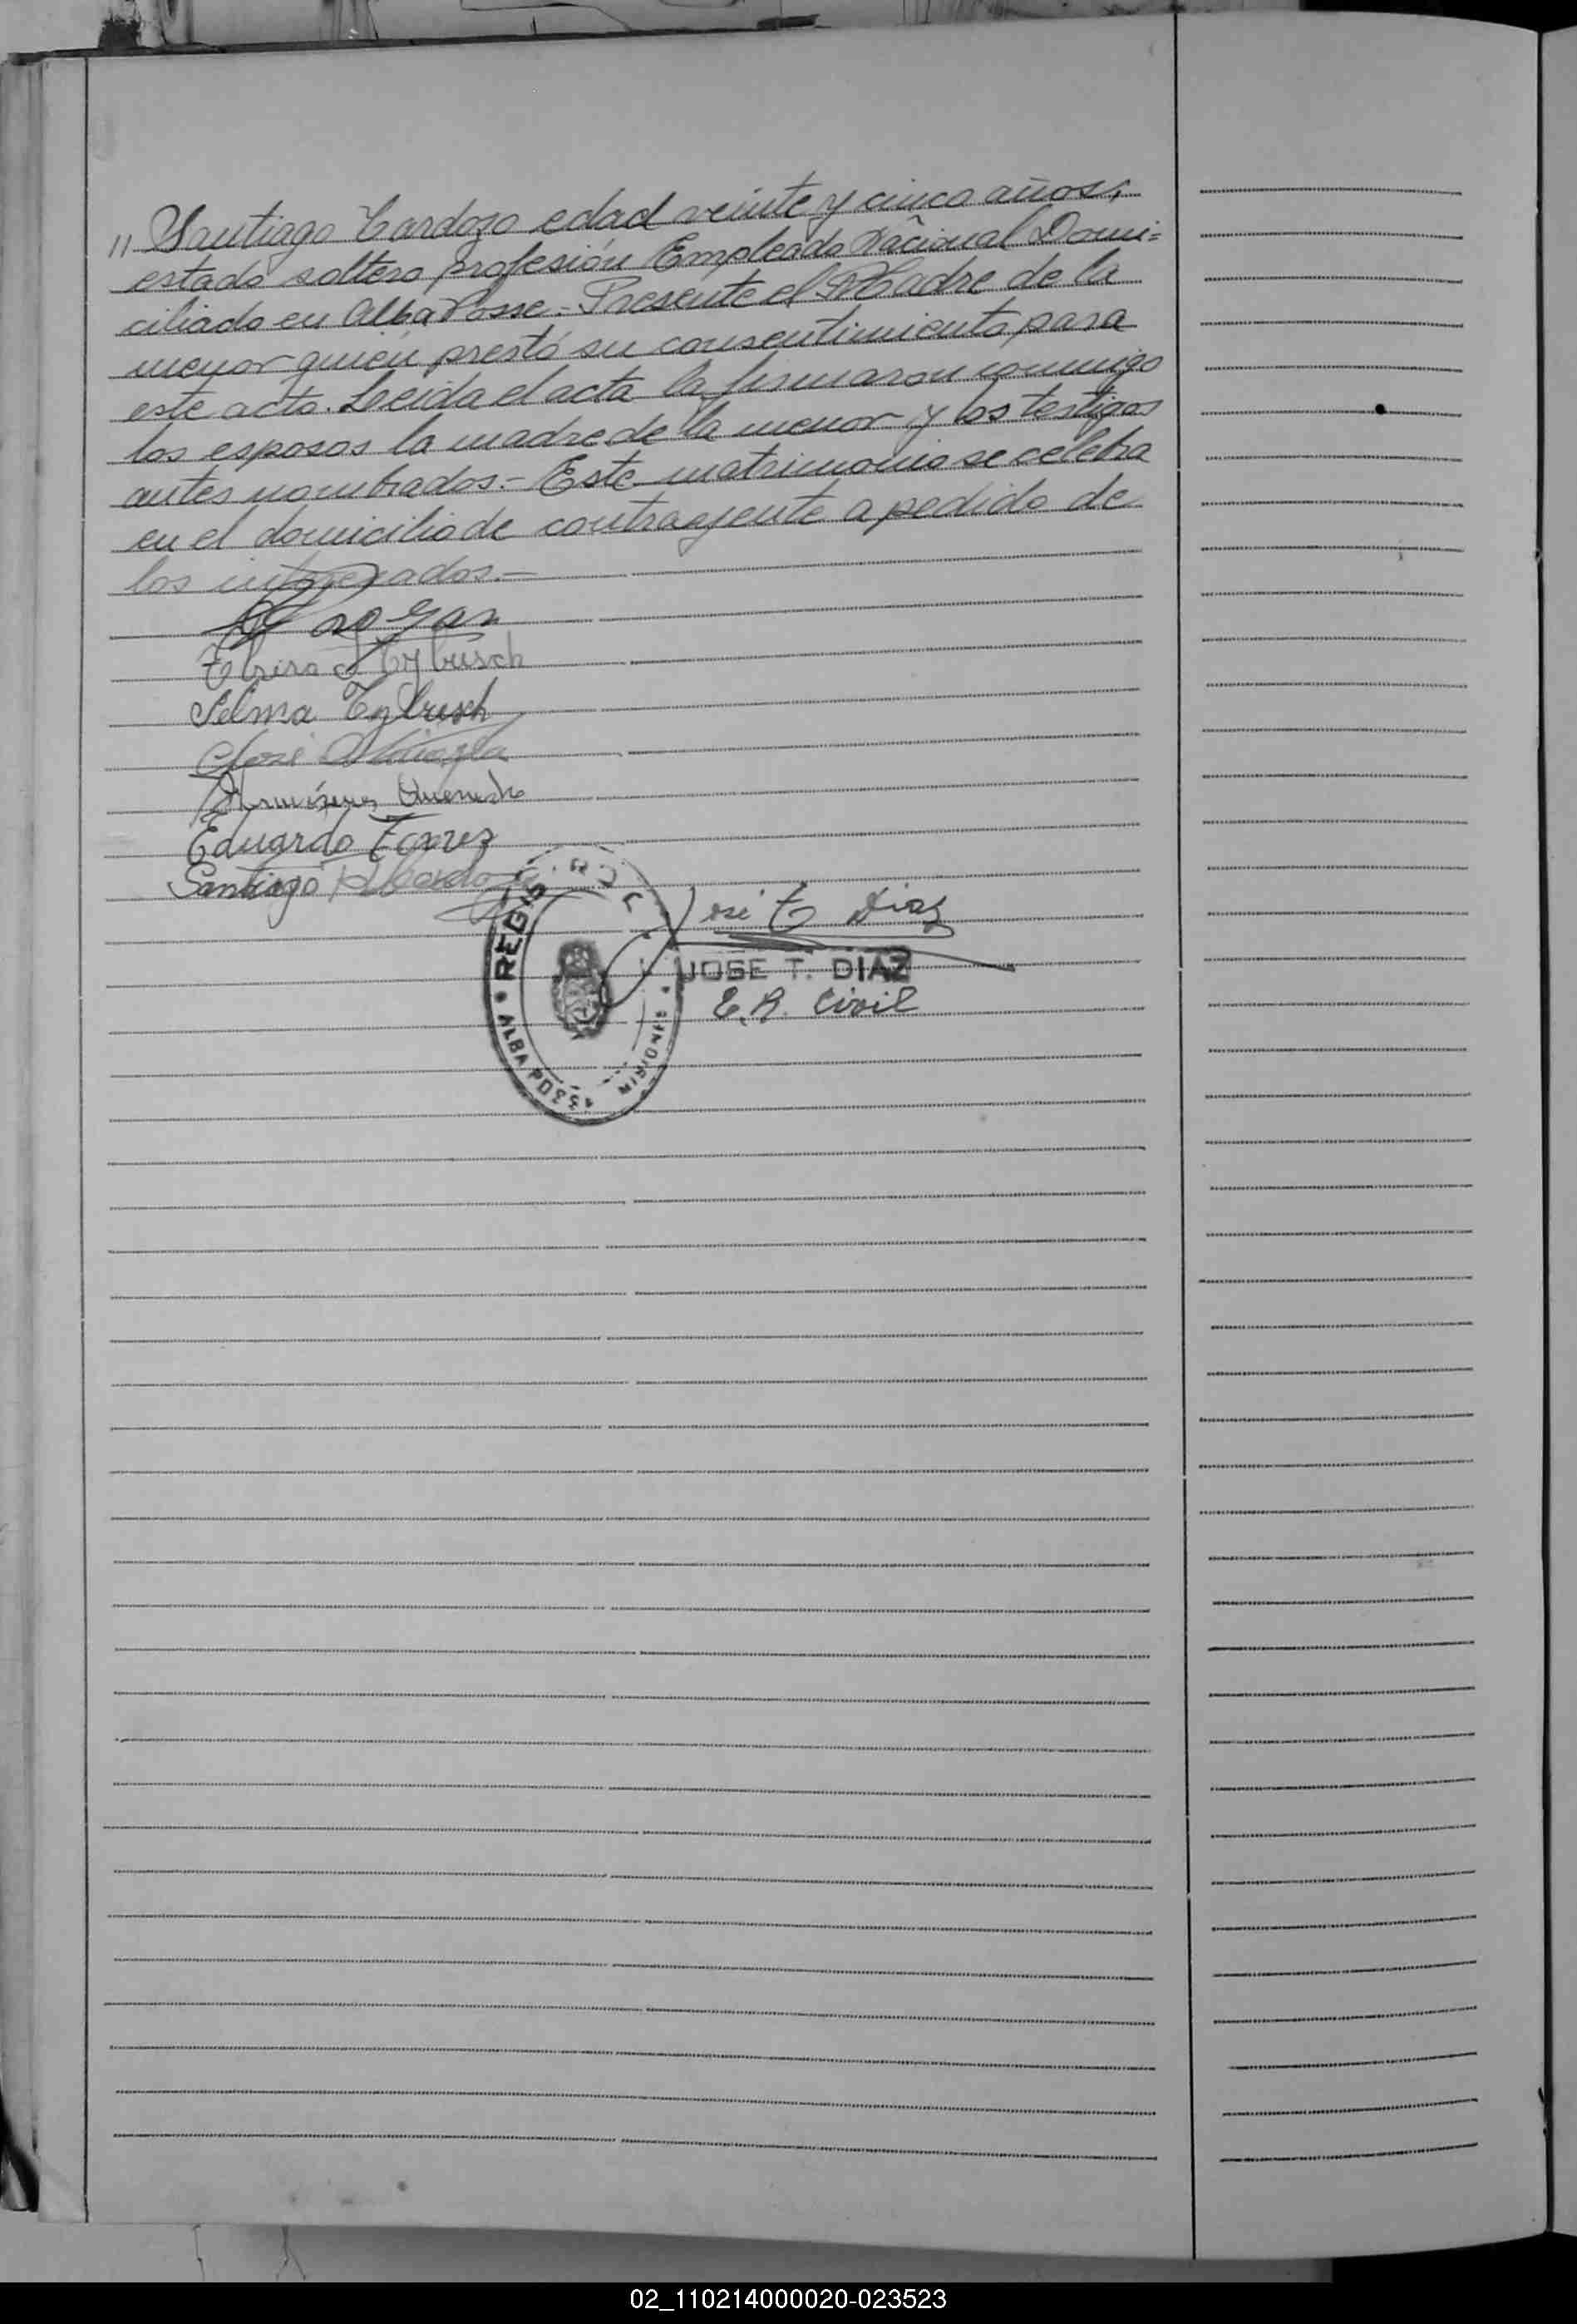 " Santiago Cardozo edad veinte y cinco años,
estado soltero profesión Empleado Nacional Domi=
ciliado en Alba Posse.- Presente el Madre de la
menor quien prestó su consentimiento para
este acto. Leida el acta la firmaron conmigo
los esposos la madre de la menor y los testigos
antes nombrados.- Este matrimonio se celebra
en el domicilio de contrayente a pedido de
los interesados.-
Selma
José
Eduardo Torres
Santiago Cardozo
José T Diaz
JOSE T. DIAZ
E. R. Civil
REGIS
ALBA POSSE
MISIONES
02_110214000020-023523